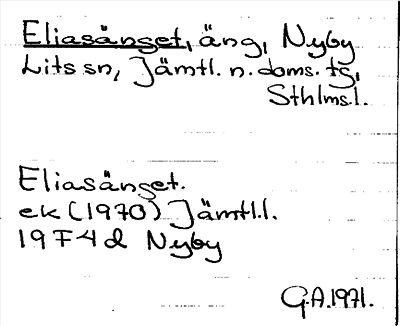 Eliasänget, äng, Nyby
Lits sn, Jämtl. n. doms. tg,
Sthlms.l.
Eliasänget.
ek (1970) Jämtl.l.
19 F 4 d Nyby
G.A. 1971.